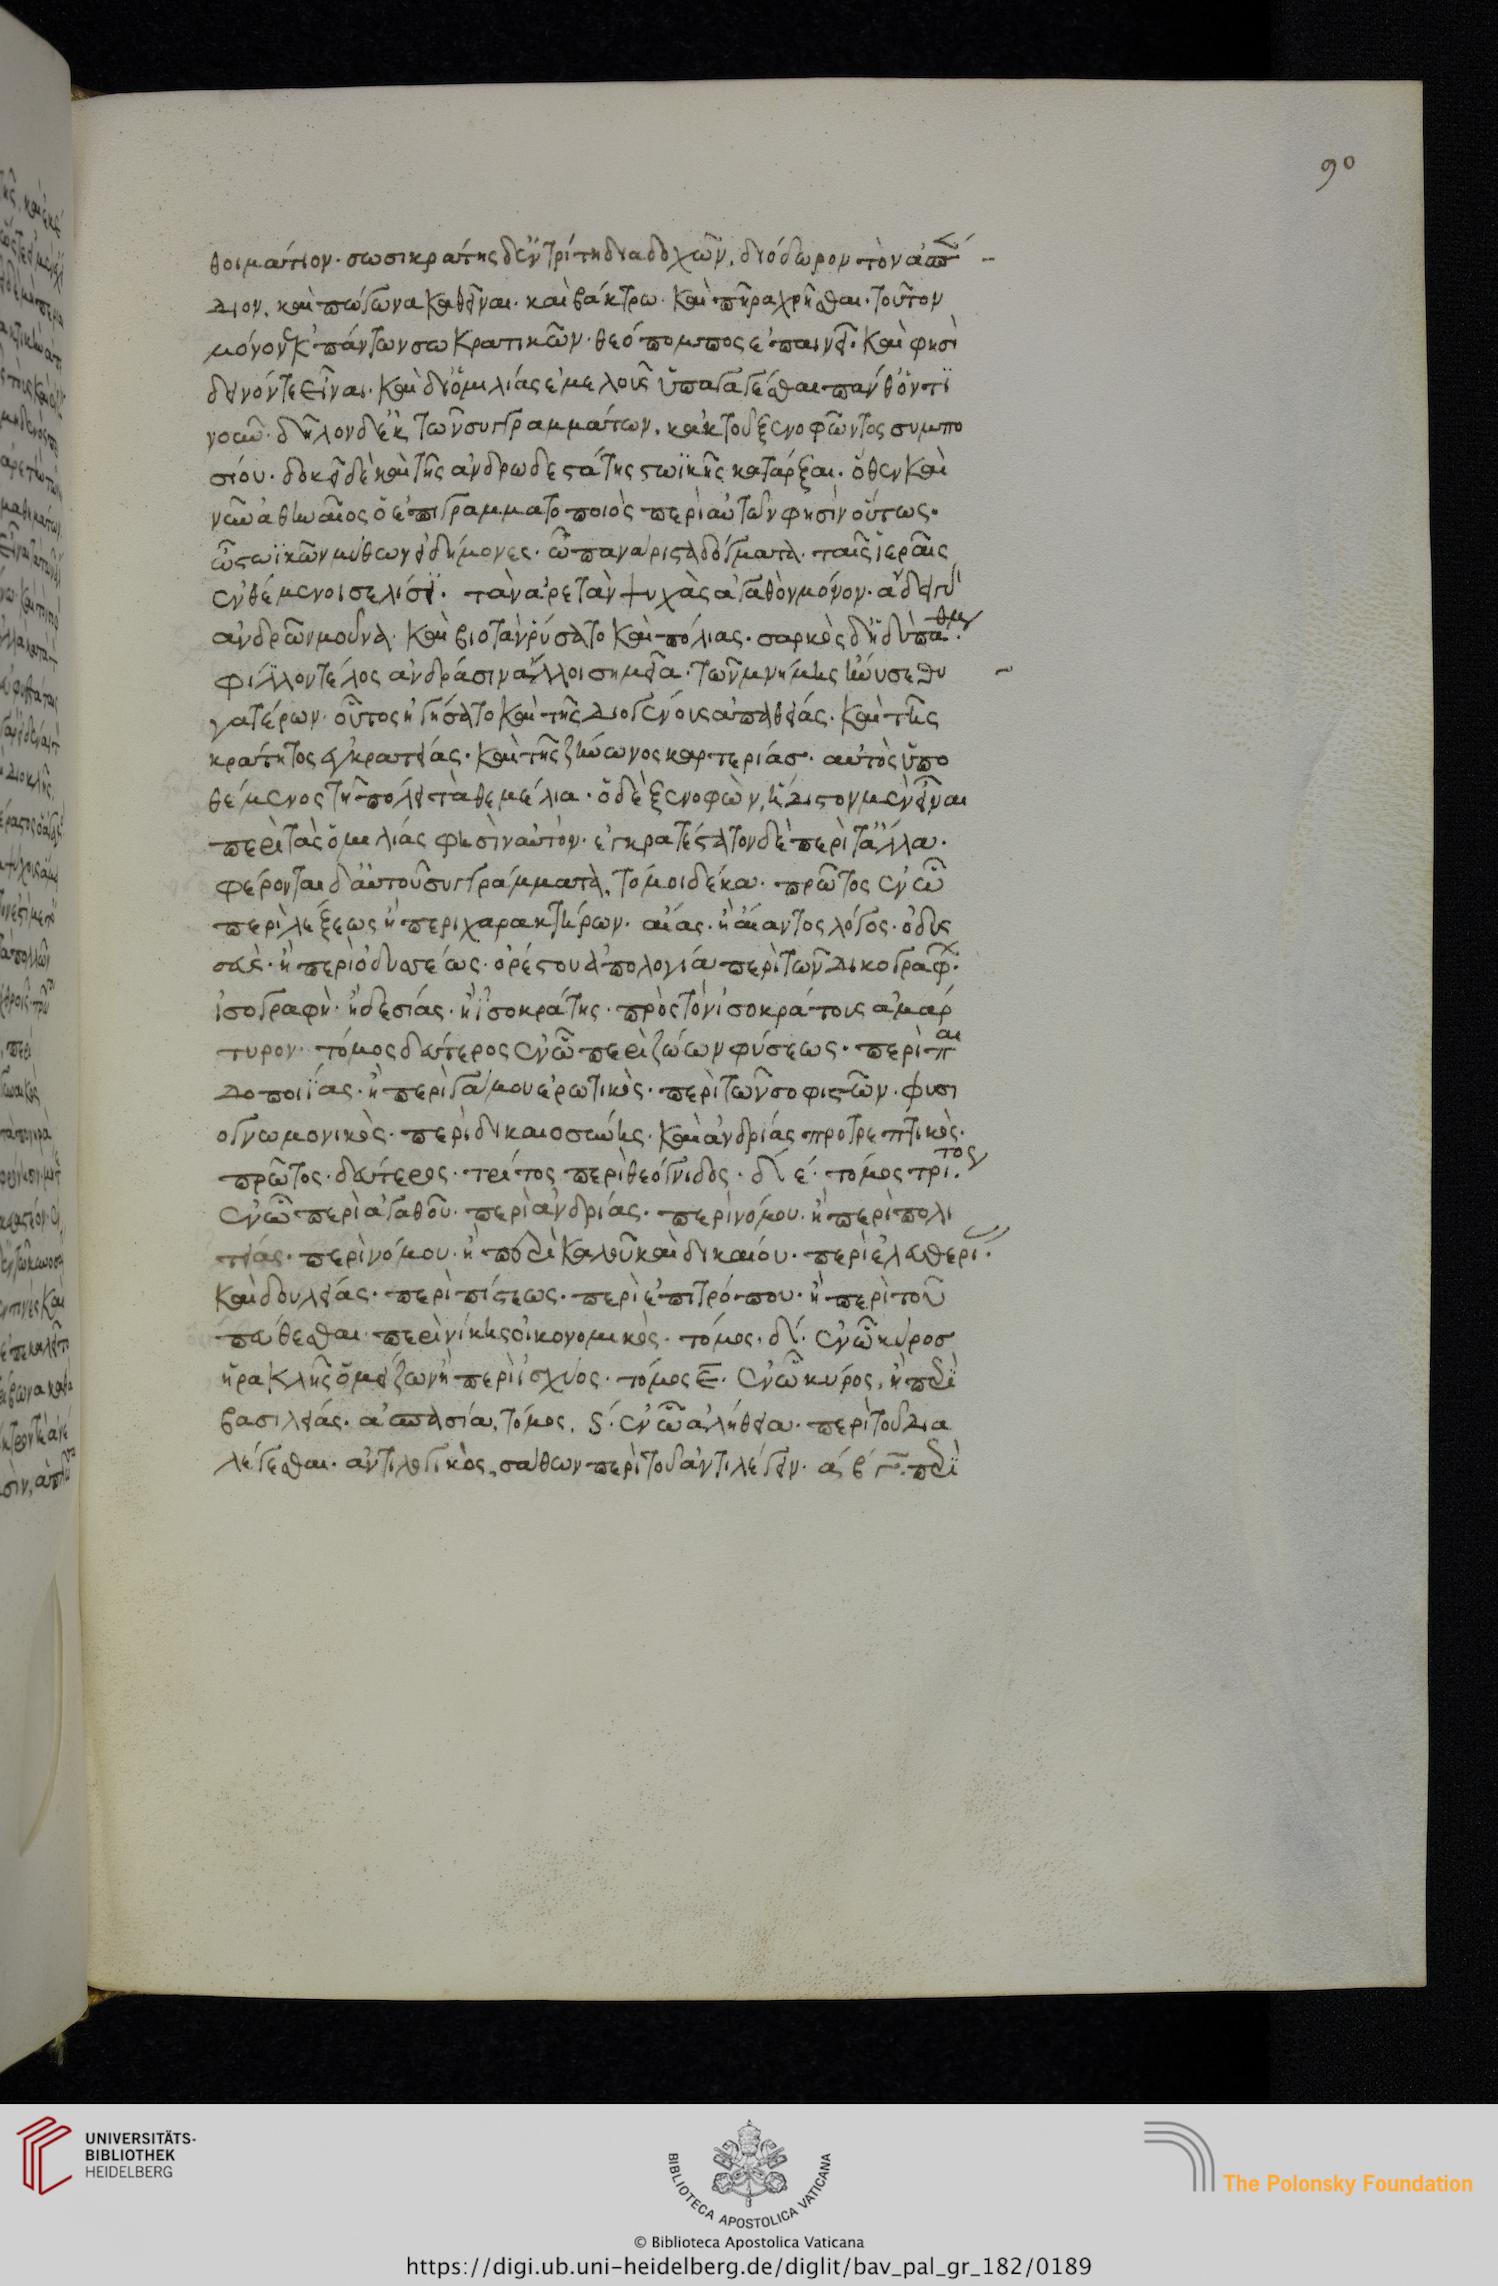 90
θοιμάτιον· σωσικράτης δ' ἐν τρίτη διαδοχῶν, διόδωρον τὸν ἀσπέν
διον, καὶ πώγωνα καθεῖναι· καὶ βάκτρω· καὶ πήρα χρῆσθαι· τοῦτον
μόνον ἐκ πάντων σωκρατικῶν· θεόπομπος ἐπαινεῖ· καὶ φησὶ
δεινόν τε εἶναι· καὶ δι' ὁμιλίας ἐμελοῦς ὑπαγαγέσθαι πάνθ' ὅντι
νοῦν· δῆλον δ' ἐκ τῶν συγγραμμάτων, κἀκ τοῦ ξενοφῶντος συμπο
σίου· δοκεῖ δὲ καὶ τῆς ἀνδρωδεστάτης στωϊκῆς κατάρξαι· ὅθεν καὶ
ἀθήναιος ὁ ἐπιγραμματοποιὸς περὶ αὐτῶν φησὶν οὕτως·
ὦ στωϊκῶν μύθων εἰδήμονες· ὦ πανάριστα δόγματα· ταῖς ἱεραῖς
ἐνθέμενοι σελίσι· τὰν ἀρετὰν ψυχᾶς ἀγαθὸν μόνον· ἅδε γὰρ
ἀνδρῶν μούνα· καὶ βιοτὰν ῥύσατο καὶ πόλιας· σαρκὸς δ' ἡδυπάθημα
φίλλον τέλος ἀνδράσιν ἄλλοις ἡ μεία· τῶν μνήμης ἤνυσε θυ
γατέρων· οὗτος ἡγήσατο καὶ τῆς διογένους ἀπαθείας· καὶ τῆς
κράτητος ἐγκρατείας· καὶ τῆς ζήνωνος καρτερίας· αὐτὸς ὑπο
θέμενος τῆ πόλει τὰ θεμέλια· ὁ δὲ ξενοφῶν, ἥδιστον μὲν εἶναι
περὶ τὰς ὁμιλίας φησὶν αὐτόν· ἐγκρατέστατον δὲ περὶ τἄλλα·
φέρονται δ' αὐτοῦ συγγράμματα, τόμοι δέκα· πρῶτος ἐν ὧ
περὶ λέξεως ἢ περὶ χαρακτήρων· αἴας· ἢ αἴαντος λόγος· ὀδυς
σεὺς· ἢ περὶ ὀδυσσέως· ὀρέστου ἀπολογία περὶ τῶν δικογράφων·
ἰσογραφὴ· ἢ δεσίας· ἢ ἰσοκράτης· πρὸς τὸν ἰσοκράτους ἀμάρ
τυρον· τόμος δεύτερος ἐν ὧ περὶ ζώων φύσεως· περὶ παι
δοποιΐας· ἢ περὶ γάμου ἐρωτικὸς· περὶ τῶν σοφιστῶν· φυσι
ογνωμονικὸς· περὶ δικαιοσύνης· καὶ ἀνδρίας προτρεπτικὸς·
πρῶτος· δεύτερος· τρίτος περὶ θεόγνιδος· δ'· ε'· τόμος τρίτος·
ἐν ὧ περὶ ἀγαθοῦ· περὶ ἀνδρίας· περὶ νόμου· ἢ περὶ πολι
τείας· περὶ νόμου· ἢ περὶ καλοῦ καὶ δικαίου· περὶ ἐλευθερίας·
καὶ δουλείας· περὶ πίστεως· περὶ ἐπιτρόπου· ἢ περὶ τοῦ
πείθεσθαι· περὶ νίκης οἰκονομικὸς· τόμος· δ'· ἐν ὧ κύρος
ἡρακλῆς ὁ μείζων ἢ περὶ ἰσχύος· τόμος ε· ἐν ὧ κύρος, ἢ περὶ
βασιλείας· ἀσπασία, τόμος, ϛ'· ἐν ὧ ἀλήθεια· περὶ τοῦ δια
λέγεσθαι· ἀντιλογικὸς, σάθων περὶ τοῦ ἀντιλέγειν· α β γ· περὶ
UNIVERSITÄTS-
BIBLIOTHEK
HEIDELBERG
BIBLIOTECA APOSTOLICA VATICANA
The Polonsky Foundation
© Biblioteca Apostolica Vaticana
https://digi.ub.uni-heidelberg.de/diglit/bav_pal_gr_182/0189